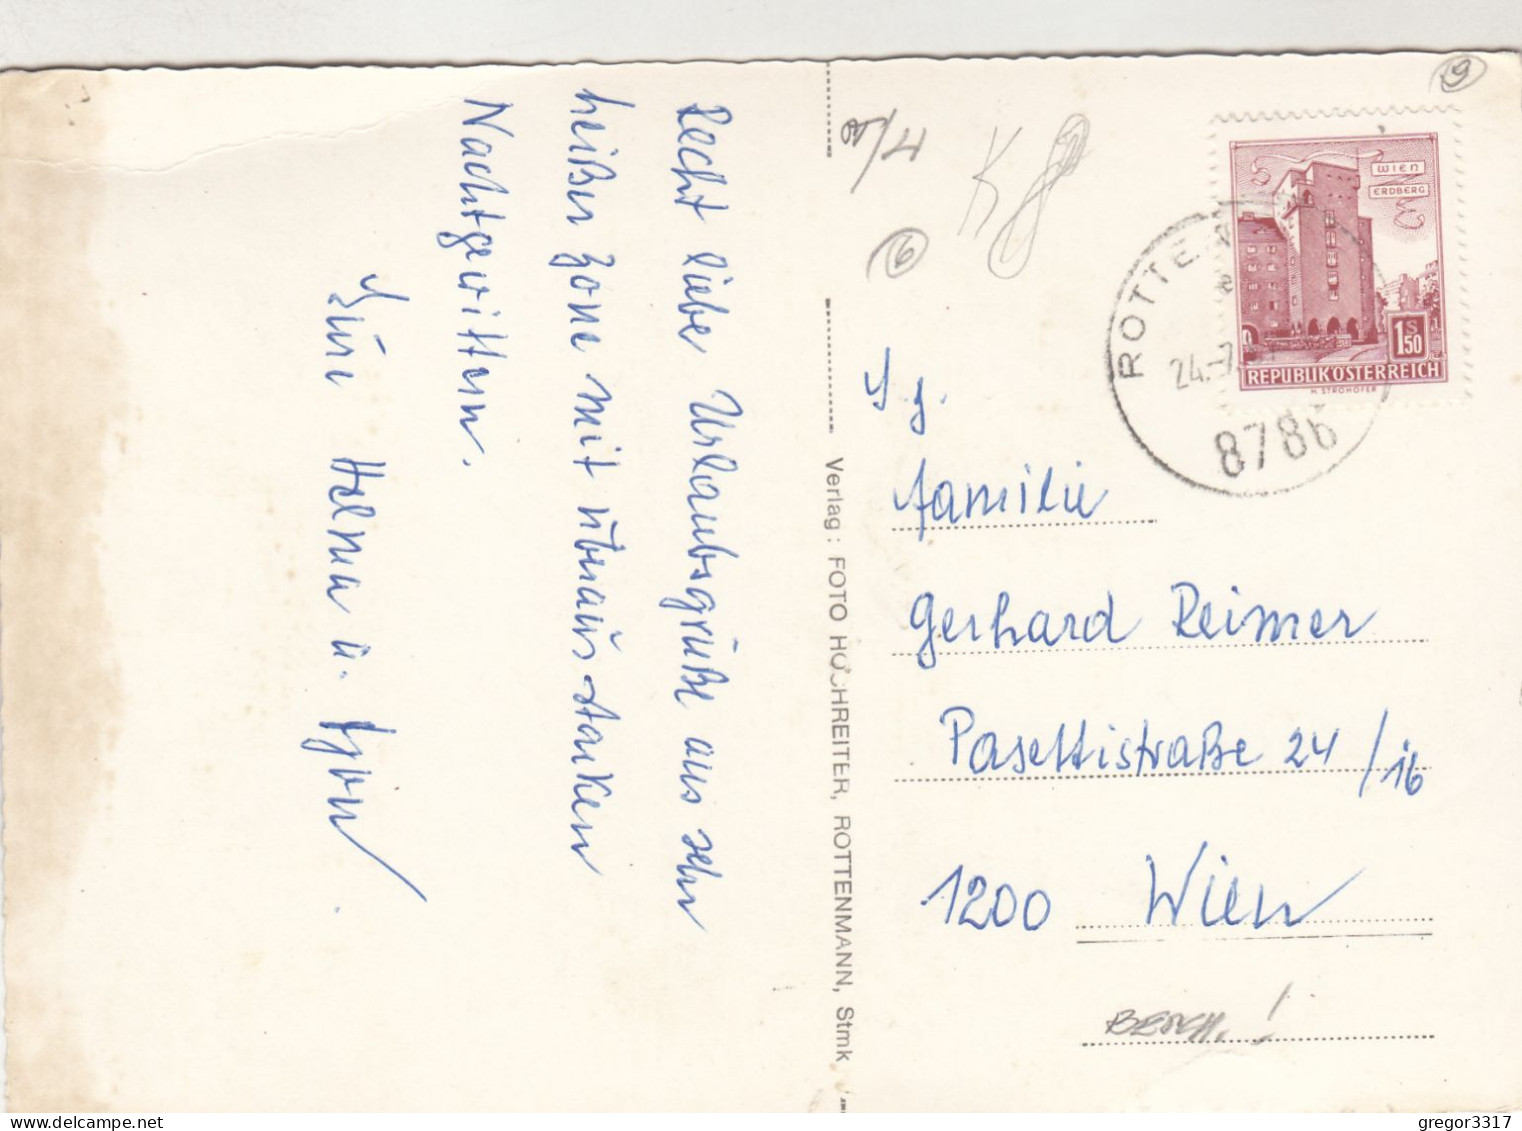 Recht liebe Urlaubsgrüße aus sehr
heißer Zone mit überaus starken
Nachtgewittern.
Eure Helma u.
Verlag: FOTO HOCHREITER, ROTTENMANN, Stmk
K
9
6
WIEN
ERDBERG
1 S 50
REPUBLIK ÖSTERREICH
H. STROHOFER
ROTTE
24.-7.
8786
Fam. 
Familie
Gerhard Reimer
Pasettistraße 24/16
1200 Wien
BESCH.!
gregor3317